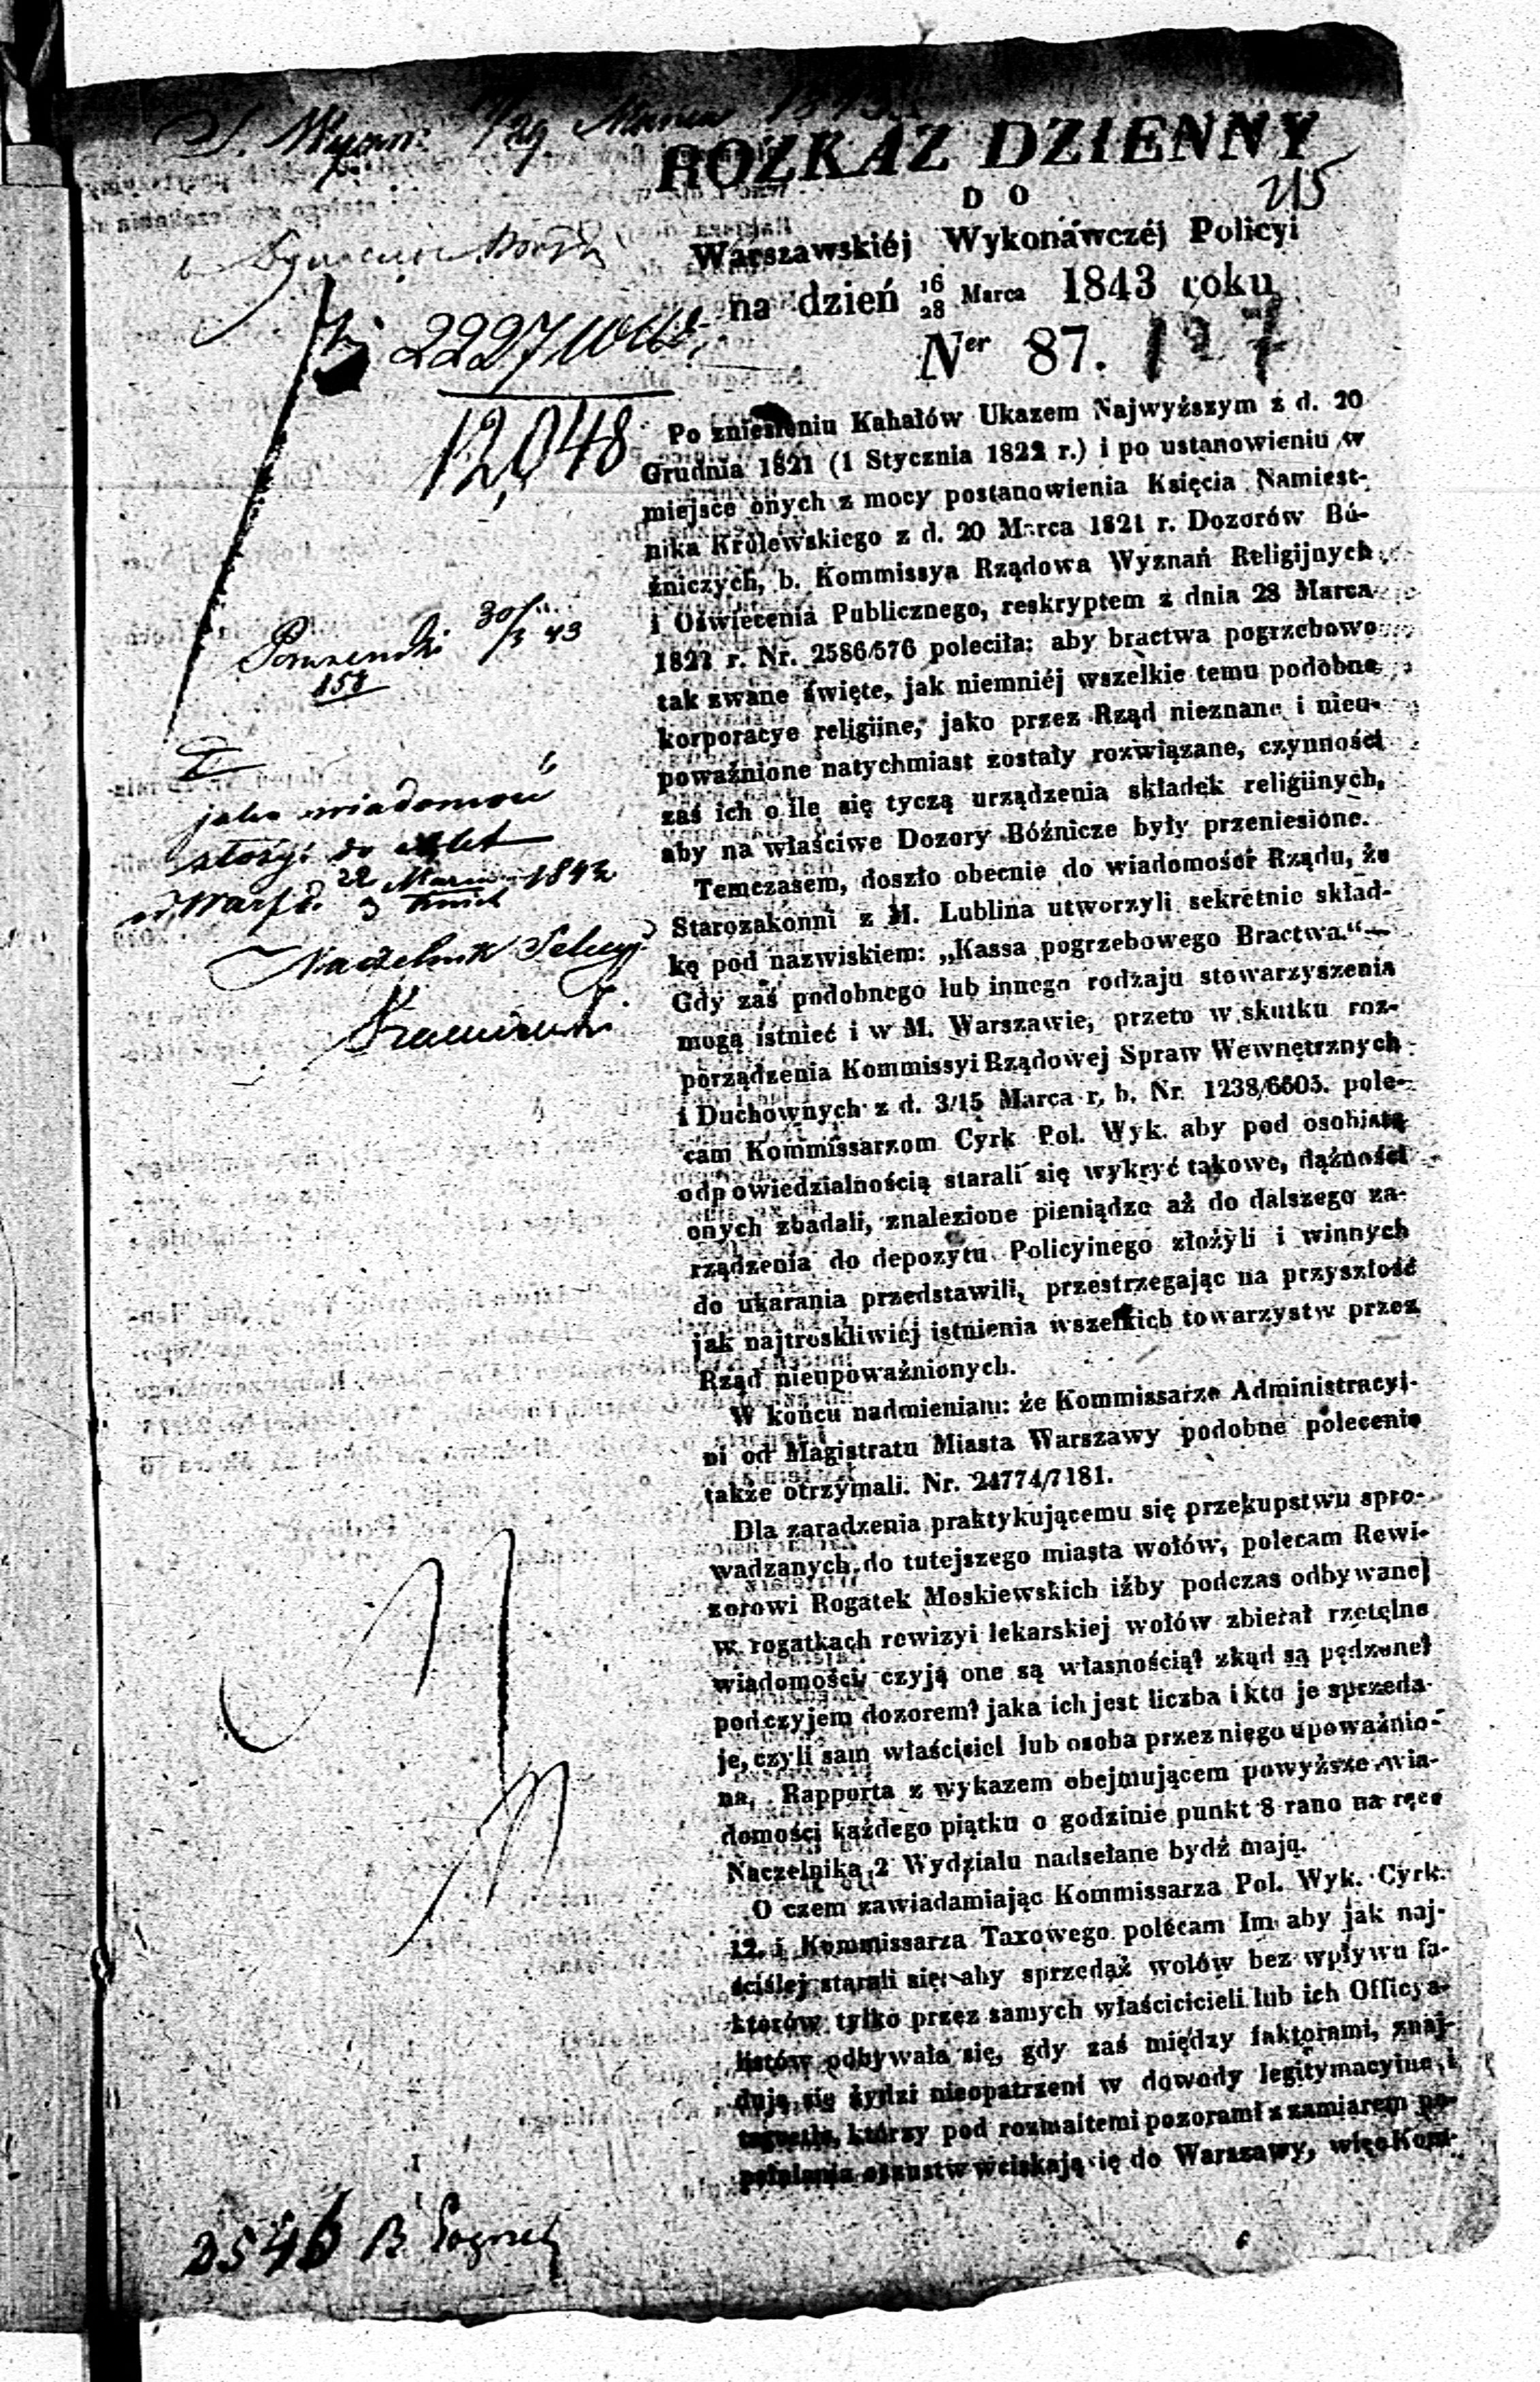 ROZKAZ DZIENNY
215
DO
Warszawskiéj Wykonawczéj Policyi
na dzień 16/28 Marca 1843 roku
Ner 87. 127
2227
12,048
Po zniesieniu Kahałów Ukazem Najwyższym z d. 20
Grudnia 1821 (1 Stycznia 1822 r.) i po ustanowieniu w
miejsce onych z mocy postanowienia Księcia Namiest-
nika Królewskiego z d. 20 Marca 1821 r. Dozorów Bó-
źniczych, b. Kommissya Rządowa Wyznań Religijnych
i Oświecenia Publicznego, reskryptem z dnia 28 Marca
1822 r. Nr. 2586/576 poleciła: aby bractwa pogrzebowe
tak zwane święte, jak niemniéj wszelkie temu podobne
korporacye religiine, jako przez Rząd nieznane i nieu-
poważnione natychmiast zostały rozwiązane, czynności
zaś ich o ile się tyczą urządzenia składek religiinych,
aby na właściwe Dozory Bóźnicze były przeniesione.
Temczasem, doszło obecnie do wiadomości Rządu, że
Starozakonni z M. Lublina utworzyli sekretnie skład-
kę pod nazwiskiem: „Kassa pogrzebowego Bractwa.“—
Gdy zaś podobnego lub innego rodzaju stowarzyszenia
mogą istnieć i w M. Warszawie, przeto w skutku roz-
porządzenia Kommissyi Rządowej Spraw Wewnętrznych
i Duchownych z d. 3/15 Marca r. b. Nr. 1238/6605. pole-
cam Kommissarzom Cyrk Pol. Wyk. aby pod osobistą
odpowiedzialnością starali się wykryć takowe, dążności
onych zbadali, znalezione pieniądze aż do dalszego za-
rządzenia do depozytu Policyinego złożyli i winnych
do ukarania przedstawili, przestrzegając na przyszłość
jak najtroskliwiej istnienia wszelkich towarzystw przez
Rząd nieupoważnionych.
W końcu nadmieniam: że Kommissarze Administracyj-
ni od Magistratu Miasta Warszawy podobne polecenie
także otrzymali. Nr. 24774/7181.
Dla zaradzenia praktykującemu się przekupstwu spro-
wadzanych do tutejszego miasta wołów, polecam Rewi-
zorowi Rogatek Moskiewskich iżby podczas odbywanej
w rogatkach rewizyi lekarskiej wołów zbierał rzetelne
wiadomości, czyją one są własnością? zkąd są pędzone?
pod czyjem dozorem? jaka ich jest liczba i kto je sprzeda-
je, czyli sam właściciel lub osoba przez niego upoważnio-
na, Rapporta z wykazem obejmującem powyższe wia-
domości każdego piątku o godzinie punkt 8 rano na ręce
Naczelnika 2 Wydziału nadsełane bydź mają.
O czem zawiadamiając Kommissarza Pol. Wyk. Cyrk.
12. i Kommissarza Taxowego polecam Im aby jak naj-
ściślej starali się: aby sprzedaż wołów bez wpływu fa-
ktorów tylko przez samych właścicicieli lub ich Officya-
listów odbywała się, gdy zaś między faktorami, znaj-
dują się żydzi nieopatrzeni w dowody legitymacyine i
którzy pod rozmaitemi pozorami z zamiarem po-
pełniania oszustw wciskają się do Warszawy, więc Kom-
30/3 43
151
jako wiadomość
złożyć do akt
22 Marca 1843
Naczelnik Sekcyi
2546 B Pogrzeb